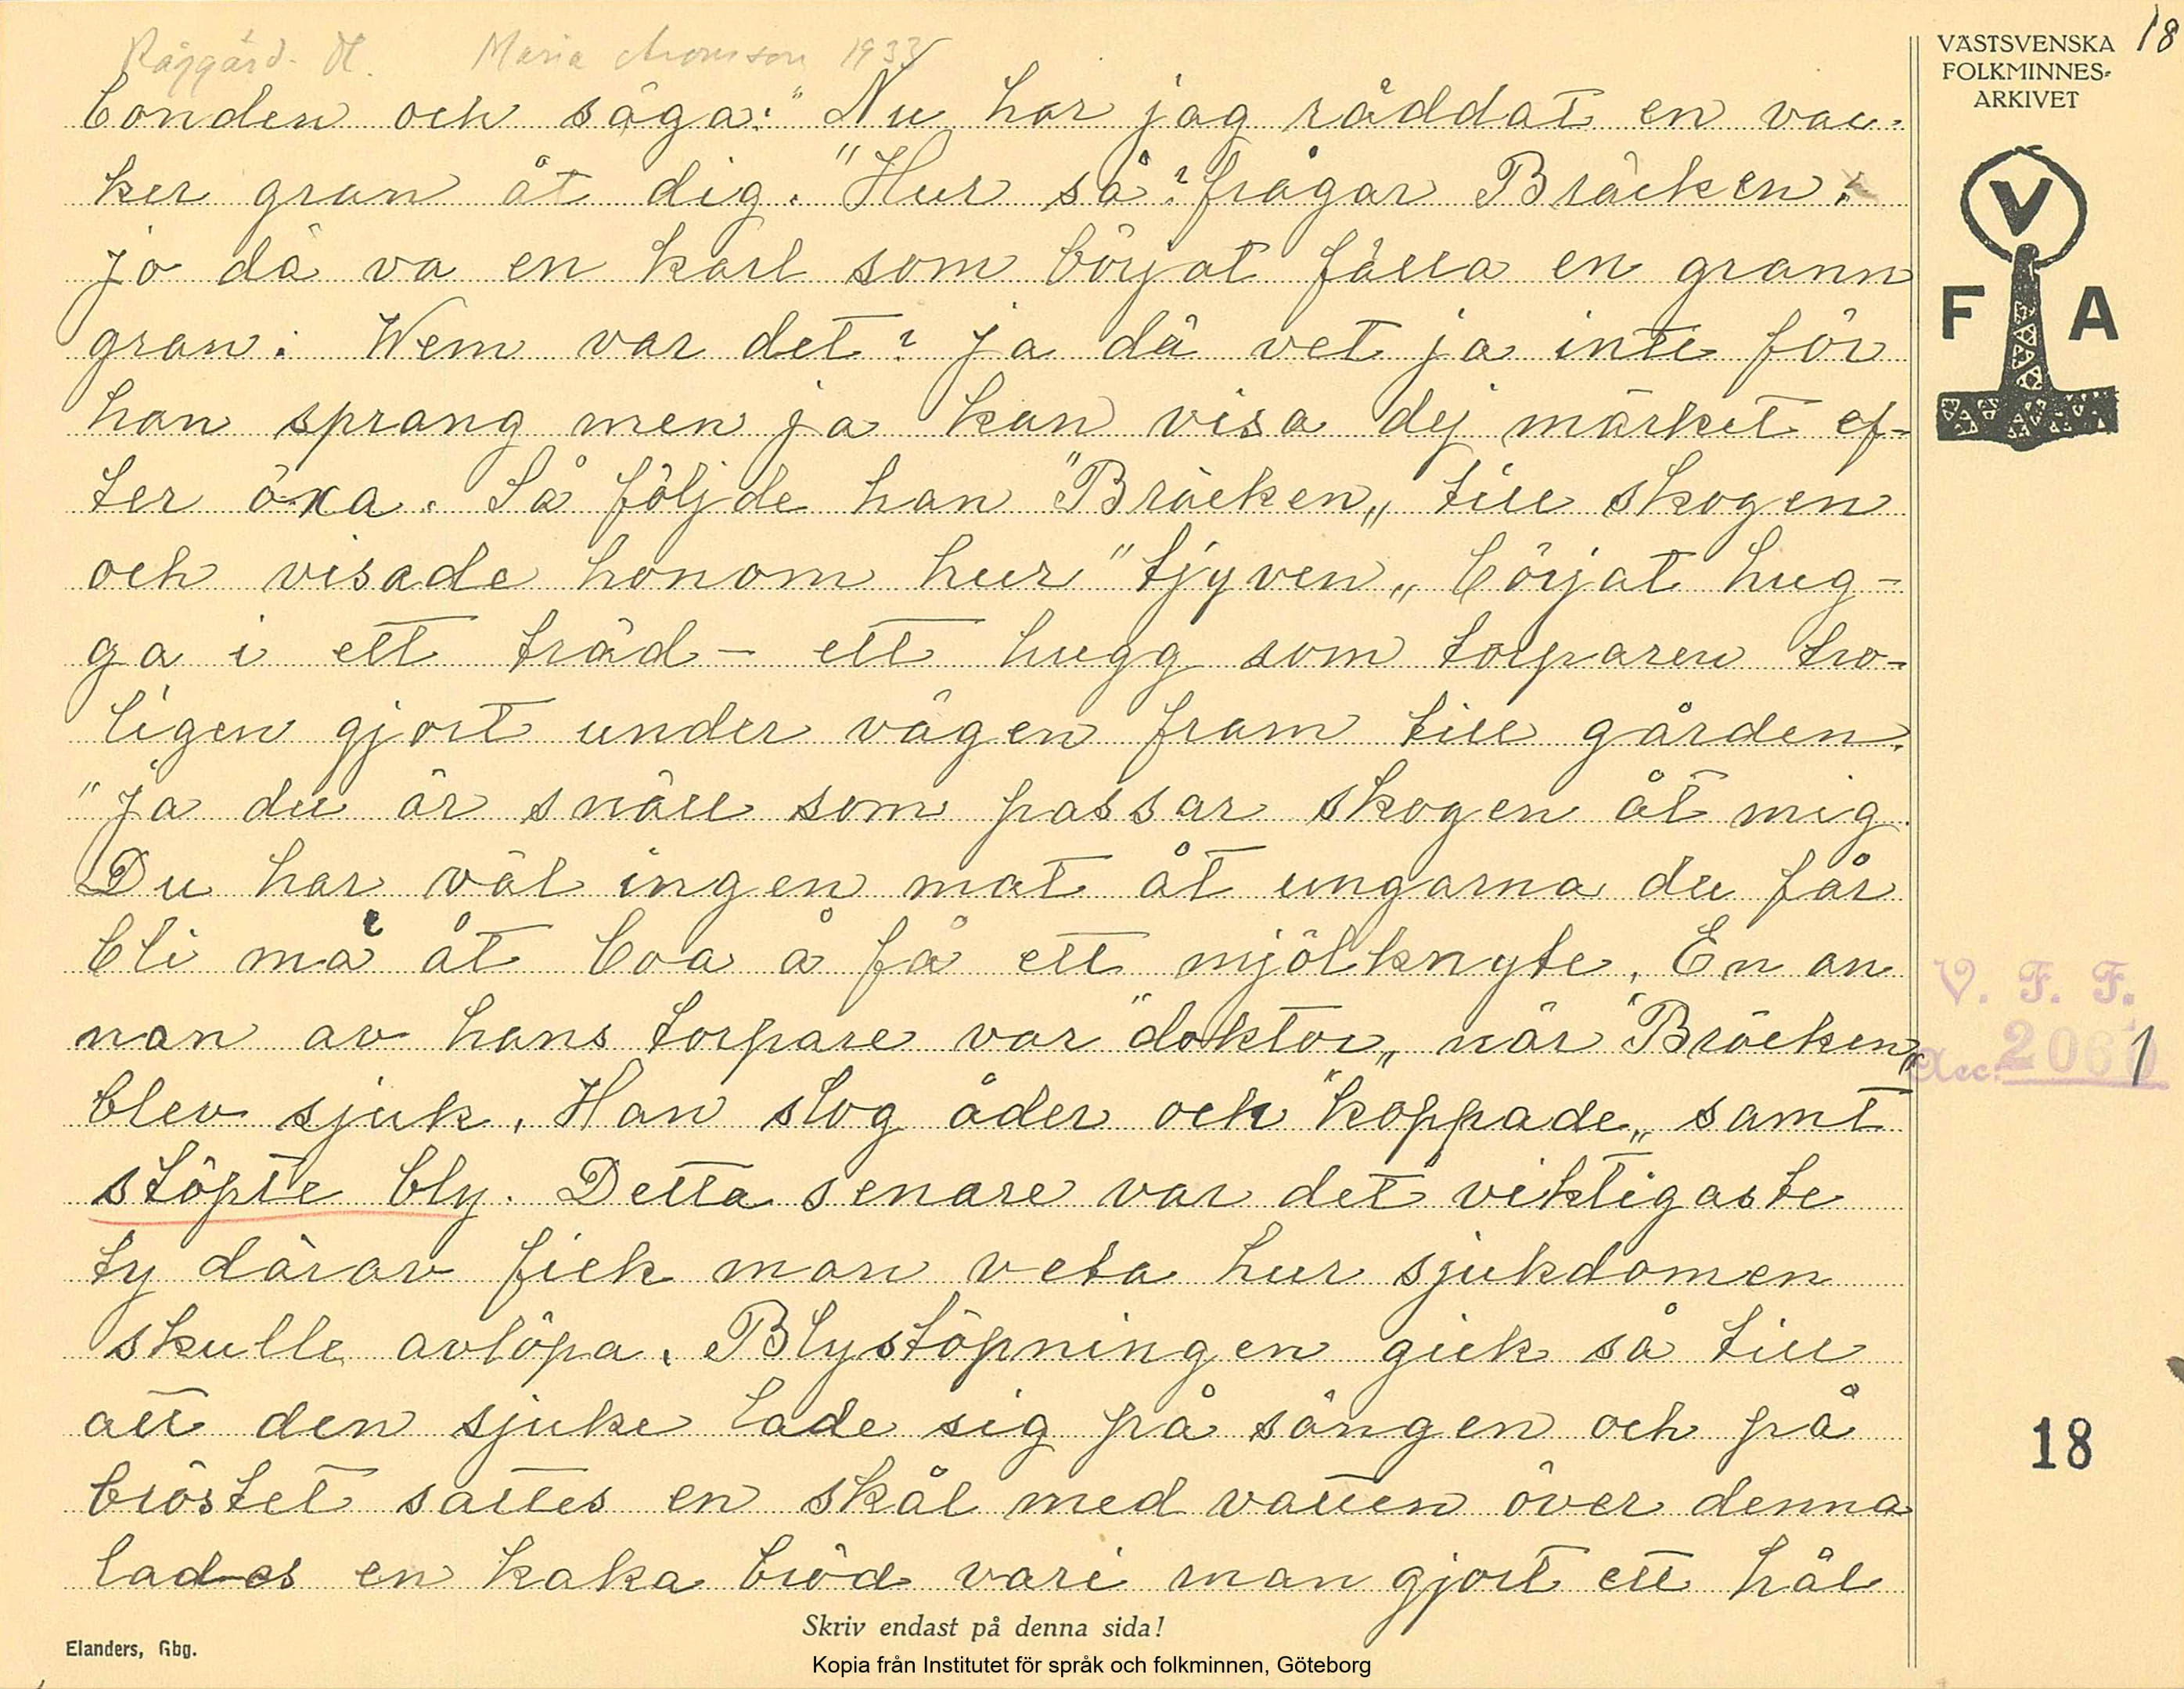 Råggärd. Maria 1933
VÄSTSVENSKA
FOLKMINNES-
ARKIVET
18
V
F A
bonden och säga: "Nu har jag räddat en vac-
ker gran åt dig. "Hur så? frågar Bräcken.
jo dä va en karl som börjat fälla en grann
gran. Wem var det? ja dä vet ja inte för
han sprang men ja kan visa dej märket ef-
ter öxa. Så följde han "Bräcken„ till skogen
och visade honom hur "tjyven„ börjat hug-
ga i ett träd - ett hugg som torparen tro-
ligen gjort under vägen fram till gården.
"Ja du är snäll som passar skogen åt mig.
Du har väl ingen mat åt ungarna du får
bli mä åt boa å få ett mjölknyte. En an
nan av hans torpare var "doktor„ när "Bräcken„
blev sjuk. Han slog åder och "koppade„ samt
stöpte bly. Detta senare var det viktigaste
ty därav fick man veta hur sjukdomen
skulle avlöpa. Blystöpningen gick så till
att den sjuke lade sig på sängen och på
bröstet sattes en skål med vatten över denna
lades en kaka bröd vari man gjort ett hål
V. F. F.
Acc. 2061
18
Skriv endast på denna sida!
Elanders, Gbg.
Kopia från Institutet för språk och folkminnen, Göteborg